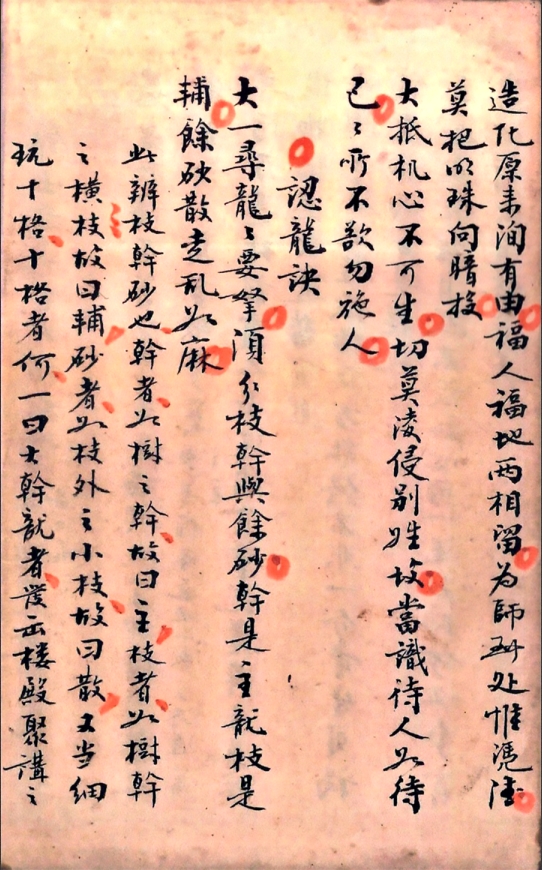 造化原来洵有由福人福地两相留为師到处惟憑德
莫把明珠向暗投
大抵机心不可生切莫凌侵别姓坟當識待人如待
己々所不欲勿施人
認龍訣
大一尋龍々要拏須分枝幹與餘砂幹是主龍枝是
輔餘砂散走乱如麻
此辨枝幹砂也幹者如樹之幹故曰主枝者如樹幹
之横枝故曰輔砂者如枝外之小枝故曰散又当細
玩十格十格者何一曰大幹龍者發云楼殿聚講之